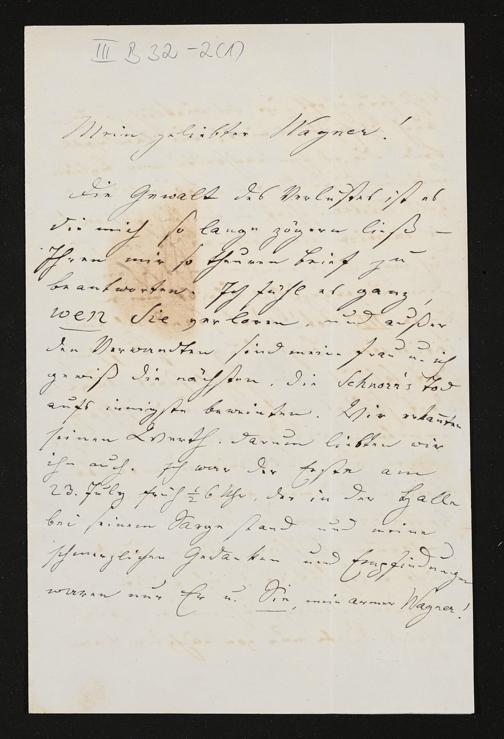 III B 32 - 2(1)
Mein geliebter Wagner!
Die Gewalt des Verlustes ist es
die mich so lange zögern ließ –
Ihren mir so theuren Brief zu
beantworten. Ich fühl es ganz,
wen Sie verloren, und außer
den Verwandten sind meine Frau u. ich
gewiß die nächsten, die Schnorr's Tod
aufs innigste beweinten. Wir erkannten
seinen Werth. darum liebten wir
ihn auch. Ich war der Erste am
23. July früh ½ 6 Uhr, der in der Halle
bei seinem Sarge stand und meine
schmerzlichen Gedanken und Empfindungen
waren nur Er u. Sie, mein armer Wagner!